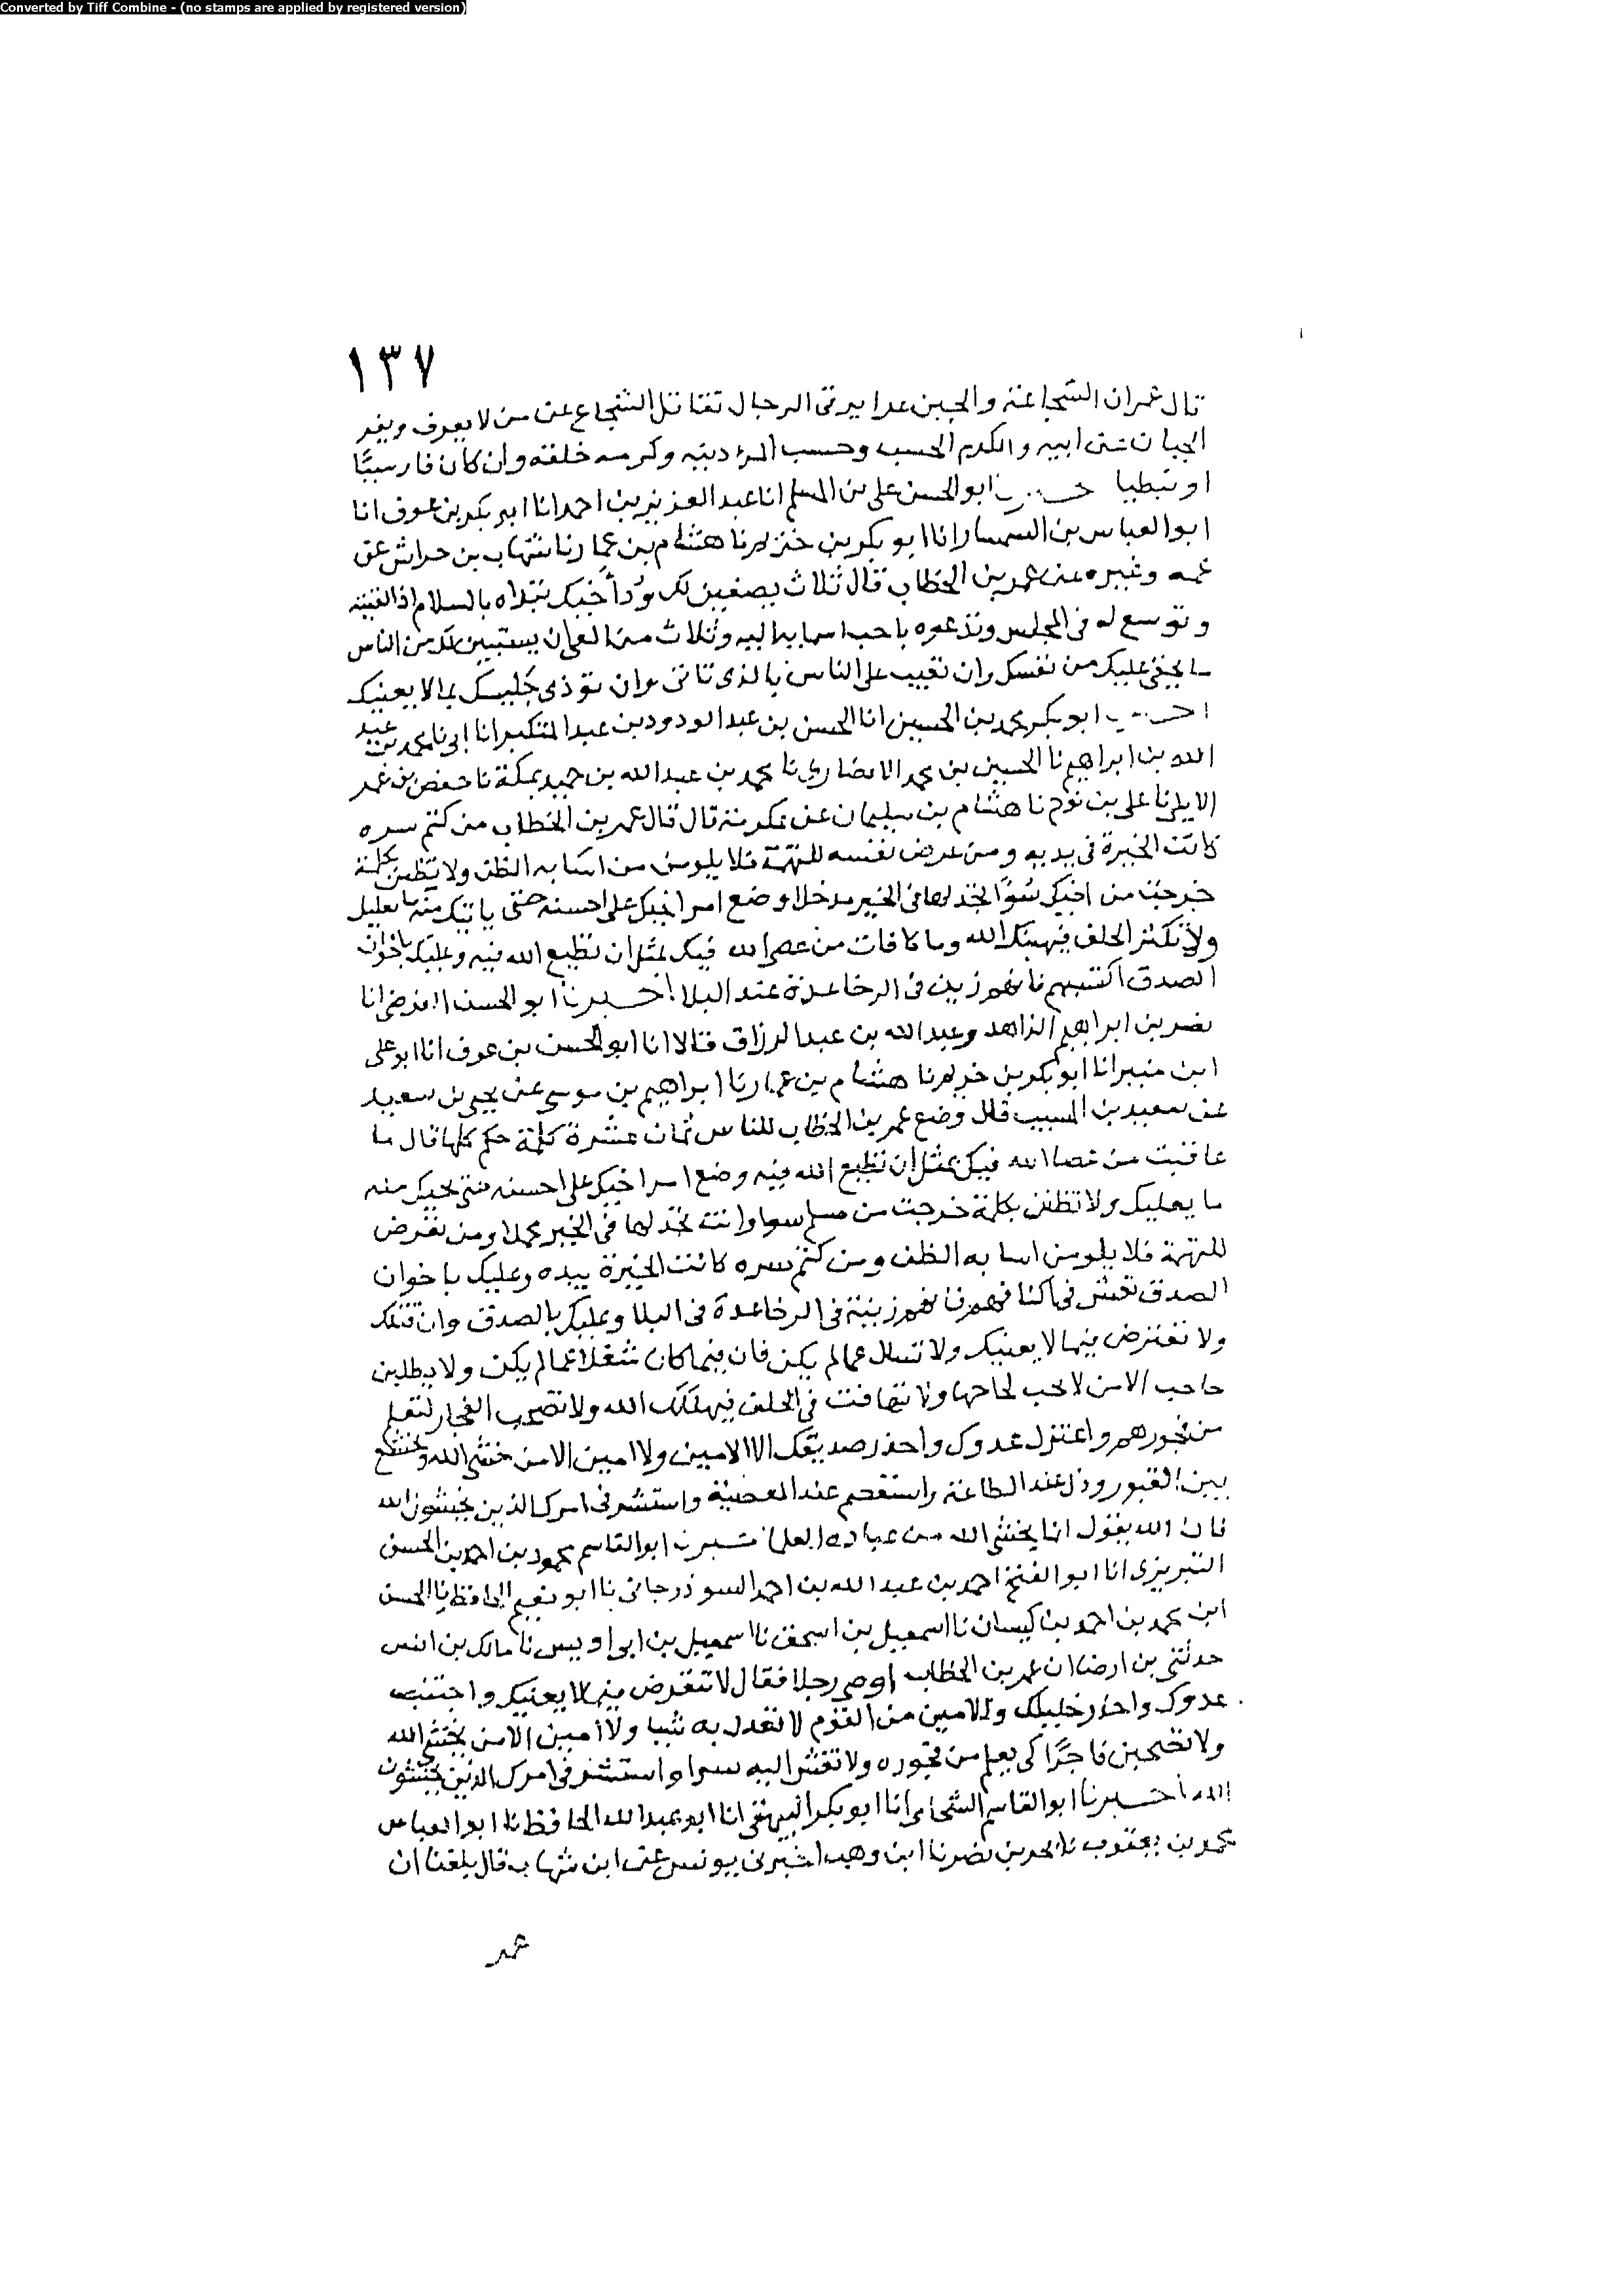 Converted by Tiff Combine - (no stamps are applied by registered version)
١٣٧
قال عمر ان الشجاعة والجبن غرايز في الرجال تقاتل الشجاع عن من لا يعرف ويفر
الجبان عن ابيه والكرم الحسب وحسب المرء دينه وكرمه خلقه وان كان فارسيًا
او نبطيا ابو الحسن علي بن المسلم انا عبد العزيز بن احمد انا ابو بكر بن عوف انا
ابو العباس بن السمسار انا ابو بكر بن خزيم نا هشام بن عمار نا شهاب بن خراش عن
عمه وغيره عن عمر بن الخطاب قال ثلاث يصفين لك ود أخيك تبداه بالسلام اذا لقيته
وتوسع له في المجلس وتدعوه باحب اسمايه اليه وثلاث من العي ان يستبين لك من الناس
ما يخفى عليك من نفسك وان تعيب على الناس بالذي تاتي وان توذي جليسك بما لا يعنيك
ابو بكر محمد بن الحسين انا الحسن بن عبد الودود بن عبد المتكبر انا ابي نا محمد بن عبيد
الله بن ابراهيم نا الحسين بن محمد الانصاري نا محمد بن عبد الله بن حميد بمكة نا حفص بن عمر
الايلي نا علي بن نوح نا هشام بن سليمان عن عكرمة قال قال عمر بن الخطاب من كتم سره
كانت الخيرة في يديه ومن عرض نفسه للتهمة فلا يلومن من اسا به الظن ولا تظنن بكلمة
خرجت من اخيك سوًا تجد لها في الخير مدخلا وضع امر اخيك على احسنه حتى ياتيك منه ما يغلبك
ولا تكثر الحلف فيهينك الله وما كافات من عصى الله فيك بمثل ان تطيع الله فيه وعليك باخوان
الصدق اكتسبهم فانهم زين في الرخا عدة عند البلا اخبرنا ابو الحسن الفرضي انا
نصر بن ابراهيم الزاهد وعبد الله بن عبد الرزاق قالا انا ابو الحسن بن عوف انا ابو علي
ابن منير انا ابو بكر بن خزيم نا هشام بن عمار نا ابراهيم بن موسى عن يحيى بن سعيد
عن سعيد بن المسيب قال وضع عمر بن الخطاب للناس ثمان عشرة كلمة حكم كلها قال ما
عاقبت من عصا الله فيك بمثل ان تطيع الله فيه وضع امر اخيك على احسنه حتى يجيك منه
ما يغلبك ولا تظنن بكلمة خرجت من مسلم سوا وانت تجد لها في الخير محملا ومن تعرض
للتهمة فلا يلومن اسا به الظن ومن كتم سره كانت الخيرة بيده وعليك باخوان
الصدق تعش في اكنافهم فانهم زينة في الرخا عدة في البلا وعليك بالصدق وان قتلك
ولا تعترض فيما لا يعنيك ولا تسال عما لم يكن فان فيما كان شغلا عما لم يكن ولا يطلبن
حاجب الا من لا يحب نجاحها ولا تتهافت في الحلف فيهلكك الله ولا تصحب الفجار لتعلم
من فجورهم واعتزل عدوك واحذر صديقك الا الامين ولا امين الا من خشى الله وتخشع
بين القبور وذل عند الطاعة واستعصم عند المعصية واستشر في امرك الذين يخشون الله
فان الله يقول انما يخشى الله من عباده العلما ابو القاسم محمود بن احمد بن الحسن
التبريزي انا ابو الفتح احمد بن عبد الله بن احمد السوذرجاني نا ابو نعيم الحافظ نا الحسن
ابن محمد بن احمد بن كيسان نا اسمعيل بن اسحق نا اسمعيل بن ابي اويس نا مالك بن انس
حدثني ان عمر بن الخطاب اوصى رجلا فقال لا تتعرض فيما لا يعنيك واجتنب
عدوك واحذر خليلك والامين من القوم لا تعدل به شيا ولا أمين الا من يخشى الله
ولا تصحبن فاجرًا كي يعلم من فجوره ولا تفش اليه سرا واستشر في امرك الذين يخشون
الله اخبرنا ابو القاسم الشحامي انا ابو بكر البيهقي انا ابو عبد الله الحافظ نا ابو العباس
محمد بن يعقوب نا بحر بن نصر نا ابن وهب اخبرني يونس عن ابن شهاب قال بلغنا ان
عمر